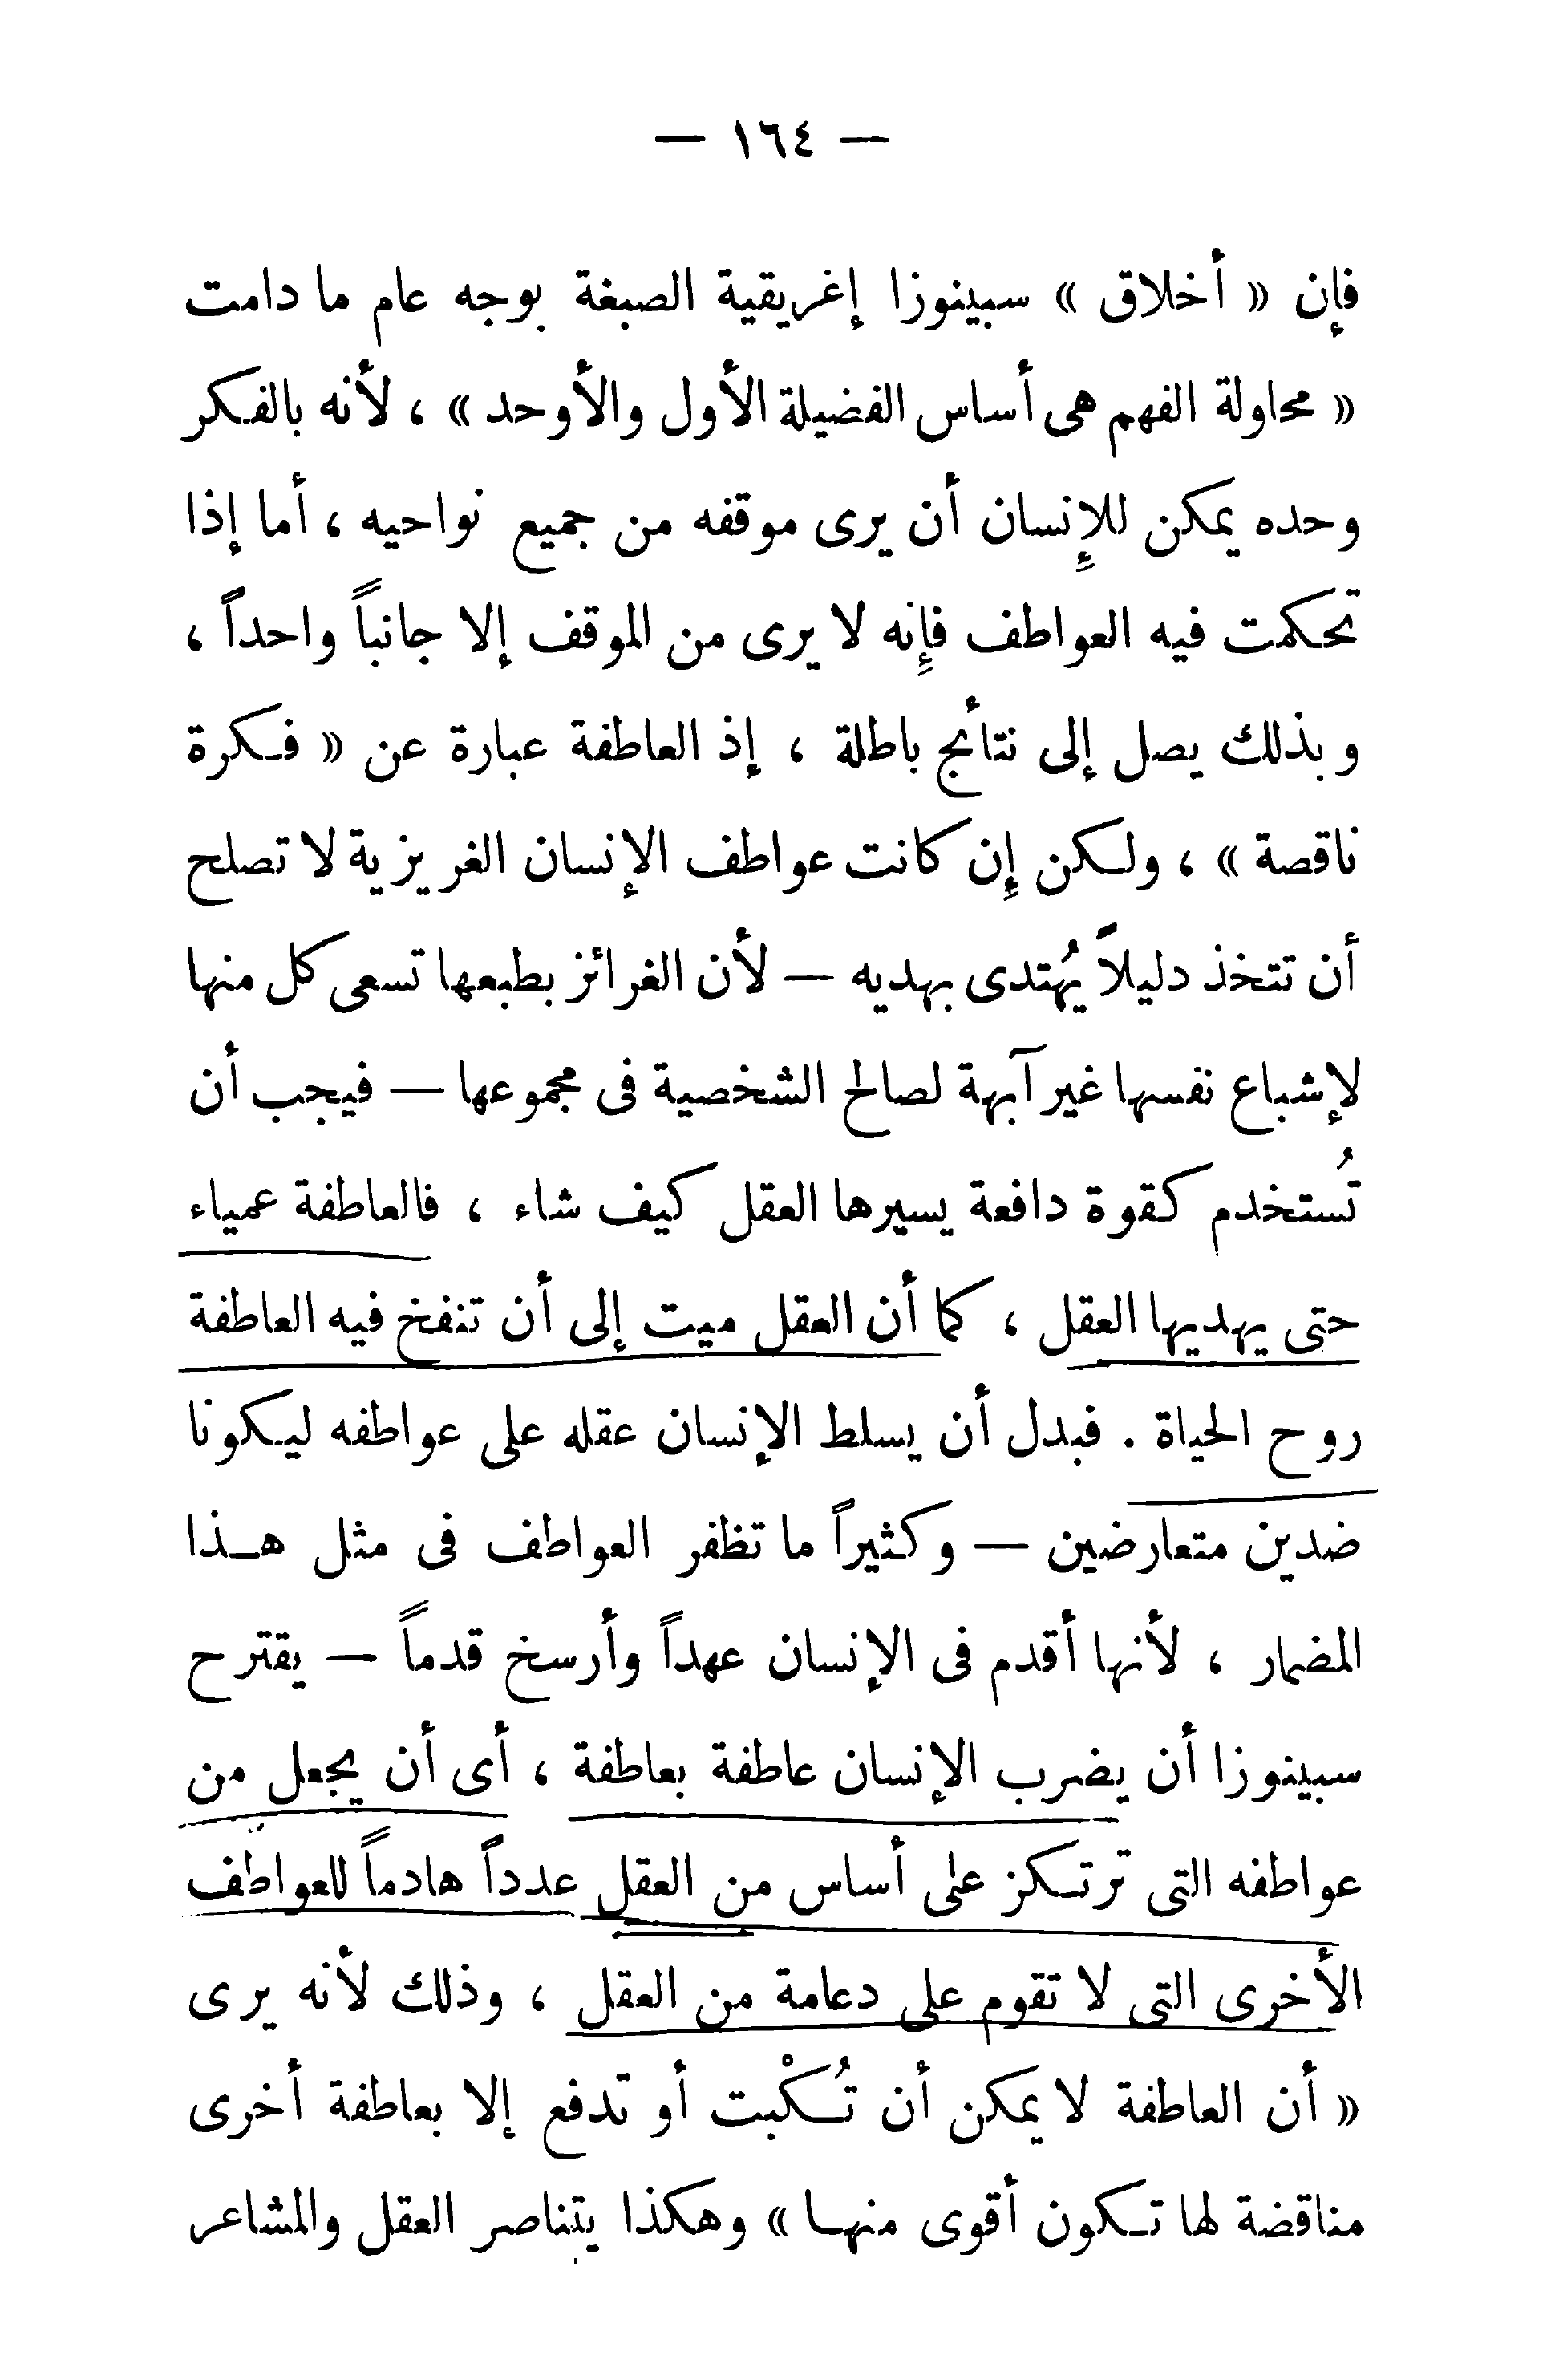 — ١٦٤ —
فإن « أخلاق » سبينوزا إغريقية الصبغة بوجه عام ما دامت
« محاولة الفهم هى أساس الفضيلة الأول والأوحد » ، لأنه بالفكر
وحده يمكن للإِنسان أن يرى موقفه من جميع نواحيه ، أما إذا
تحكمت فيه العواطف فإِنه لا يرى من الموقف إلا جانباً واحداً ،
وبذلك يصل إلى نتائج باطلة ، إذ العاطفة عبارة عن « فكرة
ناقصة » ، ولكن إِن كانت عواطف الإنسان الغريزية لا تصلح
أن تتخذ دليلاً يُهتدى بهديه — لأن الغرائز بطبعها تسعى كل منها
لإشباع نفسها غير آبهة لصالح الشخصية فى مجموعها — فيجب أن
تُستخدم كقوة دافعة يسيرها العقل كيف شاء ، فالعاطفة عمياء
حتى يهديها العقل ، كما أن العقل ميت إلى أن تنفخ فيه العاطفة
روح الحياة . فبدل أن يسلط الإنسان عقله على عواطفه ليكونا
ضدين متعارضين — وكثيراً ما تظفر العواطف فى مثل هذا
المضمار ، لأنها أقدم فى الإنسان عهداً وأرسخ قدماً — يقترح
سبينوزا أن يضرب الإنسان عاطفة بعاطفة ، أى أن يجعل من
عواطفه التى ترتكز على أساس من العقل عدداً هادماً للعواطف
الأخرى التى لا تقوم على دعامة من العقل ، وذلك لأنه يرى
« أن العاطفة لا يمكن أن تُكْبت أو تدفع إلا بعاطفة أخرى
مناقضة لها تكون أقوى منها » وهكذا يتناصر العقل والمشاعر